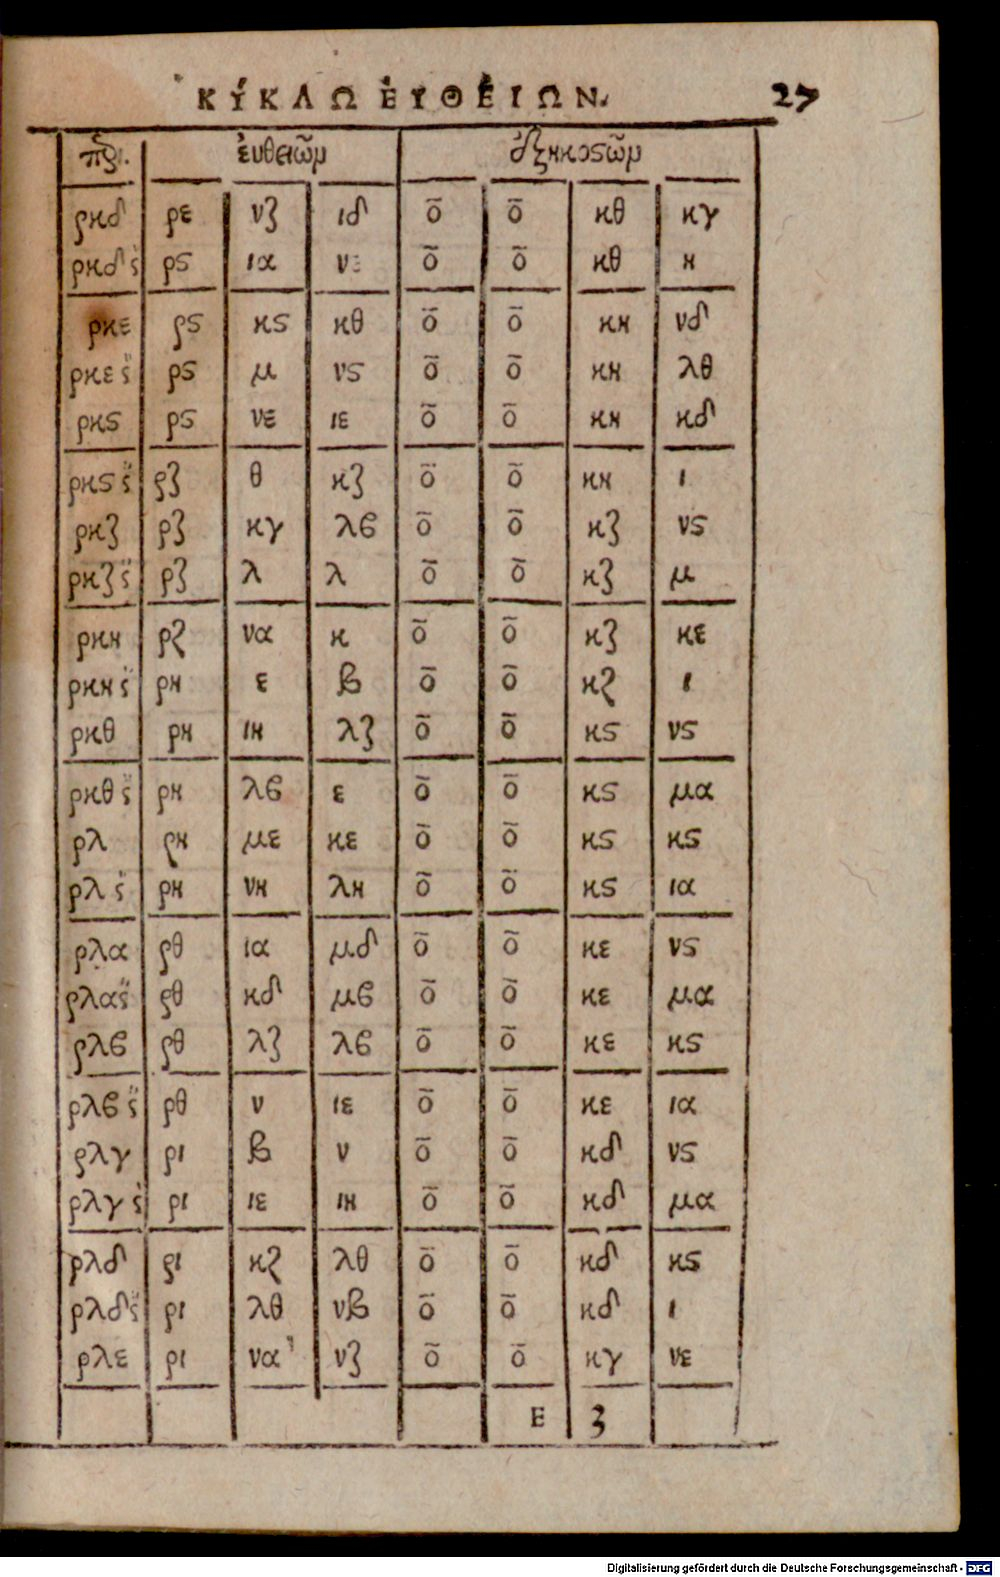 ΚΎΚΛΩ ἘΥΘΕΙΩ͂Ν. 27
περι. ἐυθειῶμ ἑξηκοςῶμ
ρκδ ρε νζ ιδ ο̄ ο̄ κθ κγ
ρκδ ς ρς ια νε ο̄ ο̄ κθ η
ρκε ρς κς κθ ο̄ ο̄ κη νδ
ρκε ς ρς μ νς ο̄ ο̄ κη λθ
ρκς ρς νε ιε ο̄ ο̄ κη κδ
ρκς ς ρζ θ κζ ο̄ ο̄ κη ι
ρκζ ρζ κγ λβ ο̄ ο̄ κζ νς
ρκζ ς ρζ λ λ ο̄ ο̄ κζ μ
ρκη ρζ να κ ο̄ ο̄ κζ κε
ρκη ς ρη ε β ο̄ ο̄ κζ ι
ρκθ ρη ιη λζ ο̄ ο̄ κς νς
ρκθ ς ρη λβ ε ο̄ ο̄ κς μα
ρλ ρη με κε ο̄ ο̄ κς κς
ρλ ς ρη νη λη ο̄ ο̄ κς ια
ρλα ρθ ια μδ ο̄ ο̄ κε νς
ρλα ς ρθ κδ μβ ο̄ ο̄ κε μα
ρλβ ρθ λζ λβ ο̄ ο̄ κε κς
ρλβ ς ρθ ν ιε ο̄ ο̄ κε ια
ρλγ ρι β ν ο̄ ο̄ κδ νς
ρλγ ς ρι ιε ιη ο̄ ο̄ κδ μα
ρλδ ρι κζ λθ ο̄ ο̄ κδ κς
ρλδ ς ρι λθ νβ ο̄ ο̄ κδ ι
ρλε ρι να νζ ο̄ ο̄ κγ νε
E 3
Digitalisierung gefördert durch die Deutsche Forschungsgemeinschaft - DFG